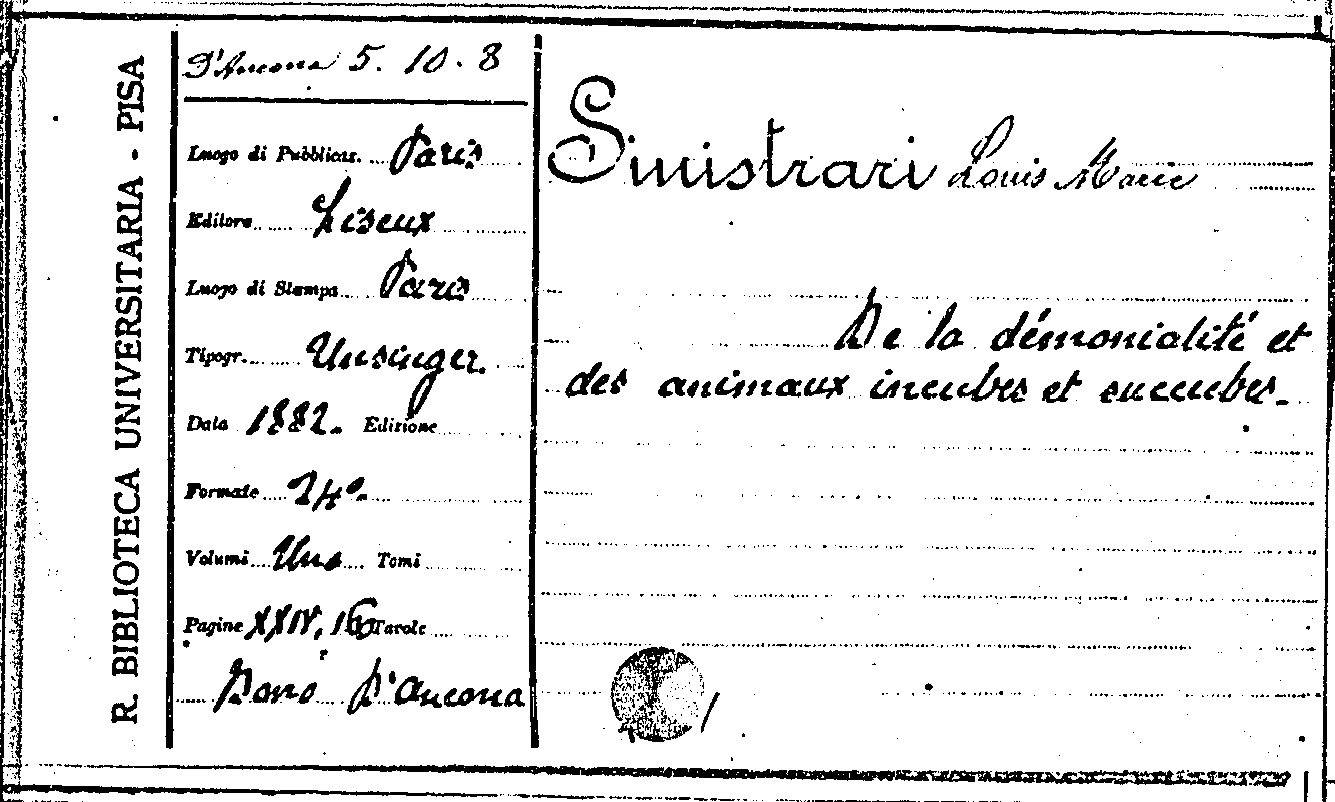 R. BIBLIOTECA UNIVERSITARIA - PISA
D'Ancona 5. 10. 8
Luogo di Pubblicaz. Paris
Editore Liseux
Luogo di Stampa Paris
Tipogr. Unsinger.
Data 1882. Edizione
Formato 24°.
Volumi Uno Tomi
Pagine XXIV, Tavole
Dono D'Ancona
Sinistrari Louis Marie
De la démonialité et
des animaux incubes et succubes.